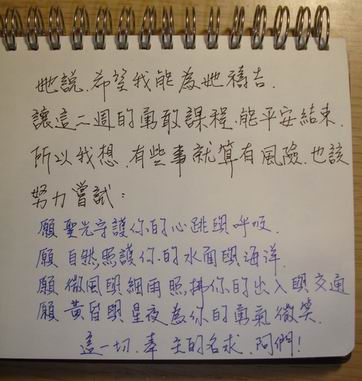 她說.希望我能為她禱告.
讓這二週的勇敢課程.能平安結束.
所以我想.有些事就算有風險.也該
努力嘗試:
願 聖光守護你的心跳與呼吸.
願 自然照護你的水面與海洋.
願 微風與細雨照拂你的出入與交通
願 黃昏與星夜為你的勇氣微笑.
這一切.奉 主的名求.阿們!